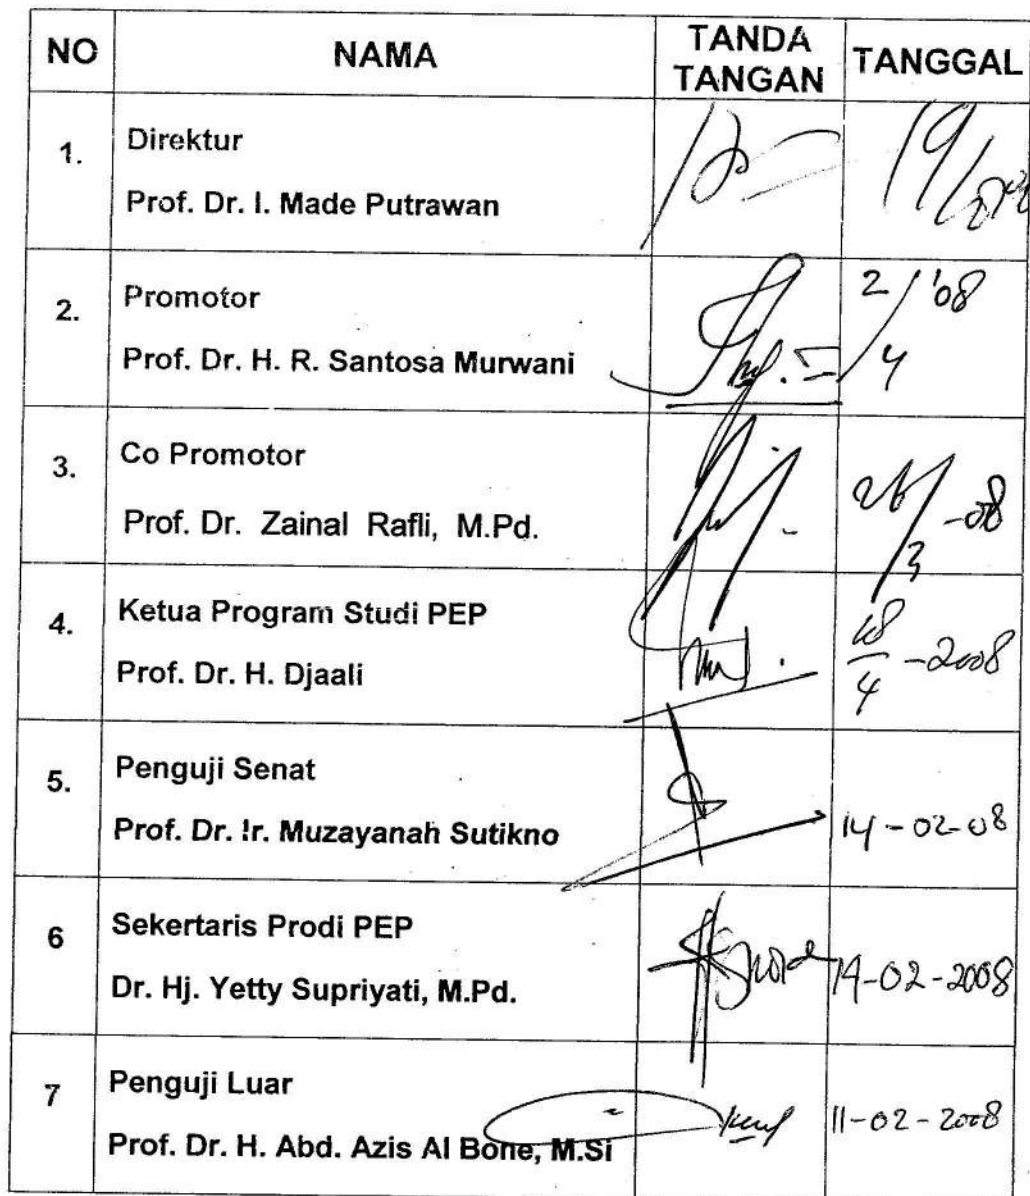 NO NAMA TANDA TANGAN TANGGAL
1. Direktur
Prof. Dr. I. Made Putrawan
2. Promotor 2/4 '08
Prof. Dr. H. R. Santosa Murwani
3. Co Promotor 26/3 -08
Prof. Dr. Zainal Rafli, M.Pd.
4. Ketua Program Studi PEP
Prof. Dr. H. Djaali
5. Penguji Senat
Prof. Dr. Ir. Muzayanah Sutikno 14-02-08
6 Sekertaris Prodi PEP
Dr. Hj. Yetty Supriyati, M.Pd. 14-02-2008
7 Penguji Luar 11-02-2008
Prof. Dr. H. Abd. Azis Al Bone, M.Si